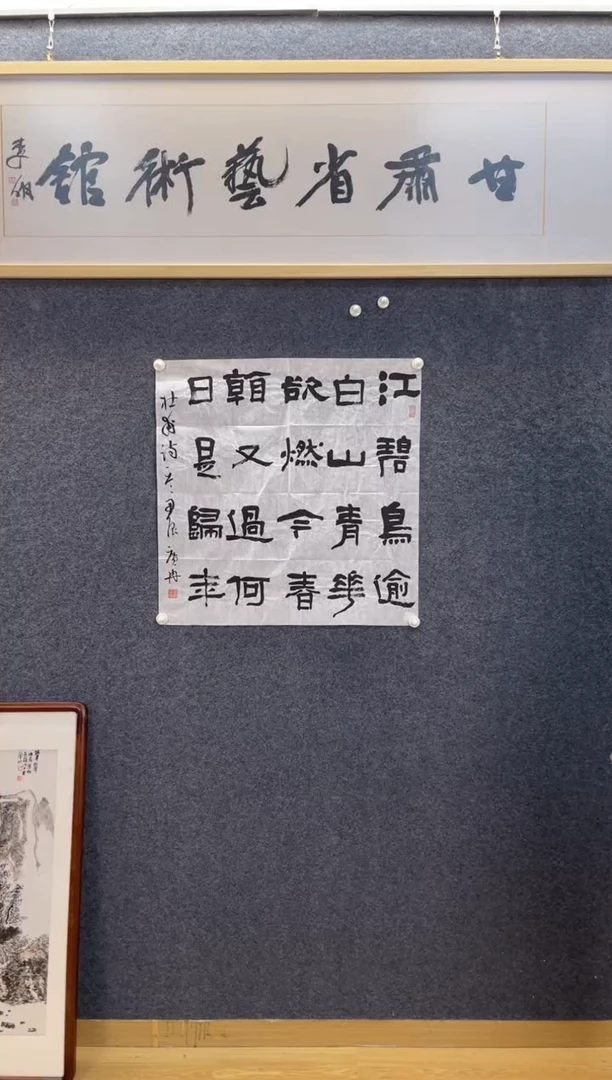 甘肅省藝術館
江碧鳥逾
白山青華
欲燃今春
看又過何
日是歸年
杜甫詩一首甲辰